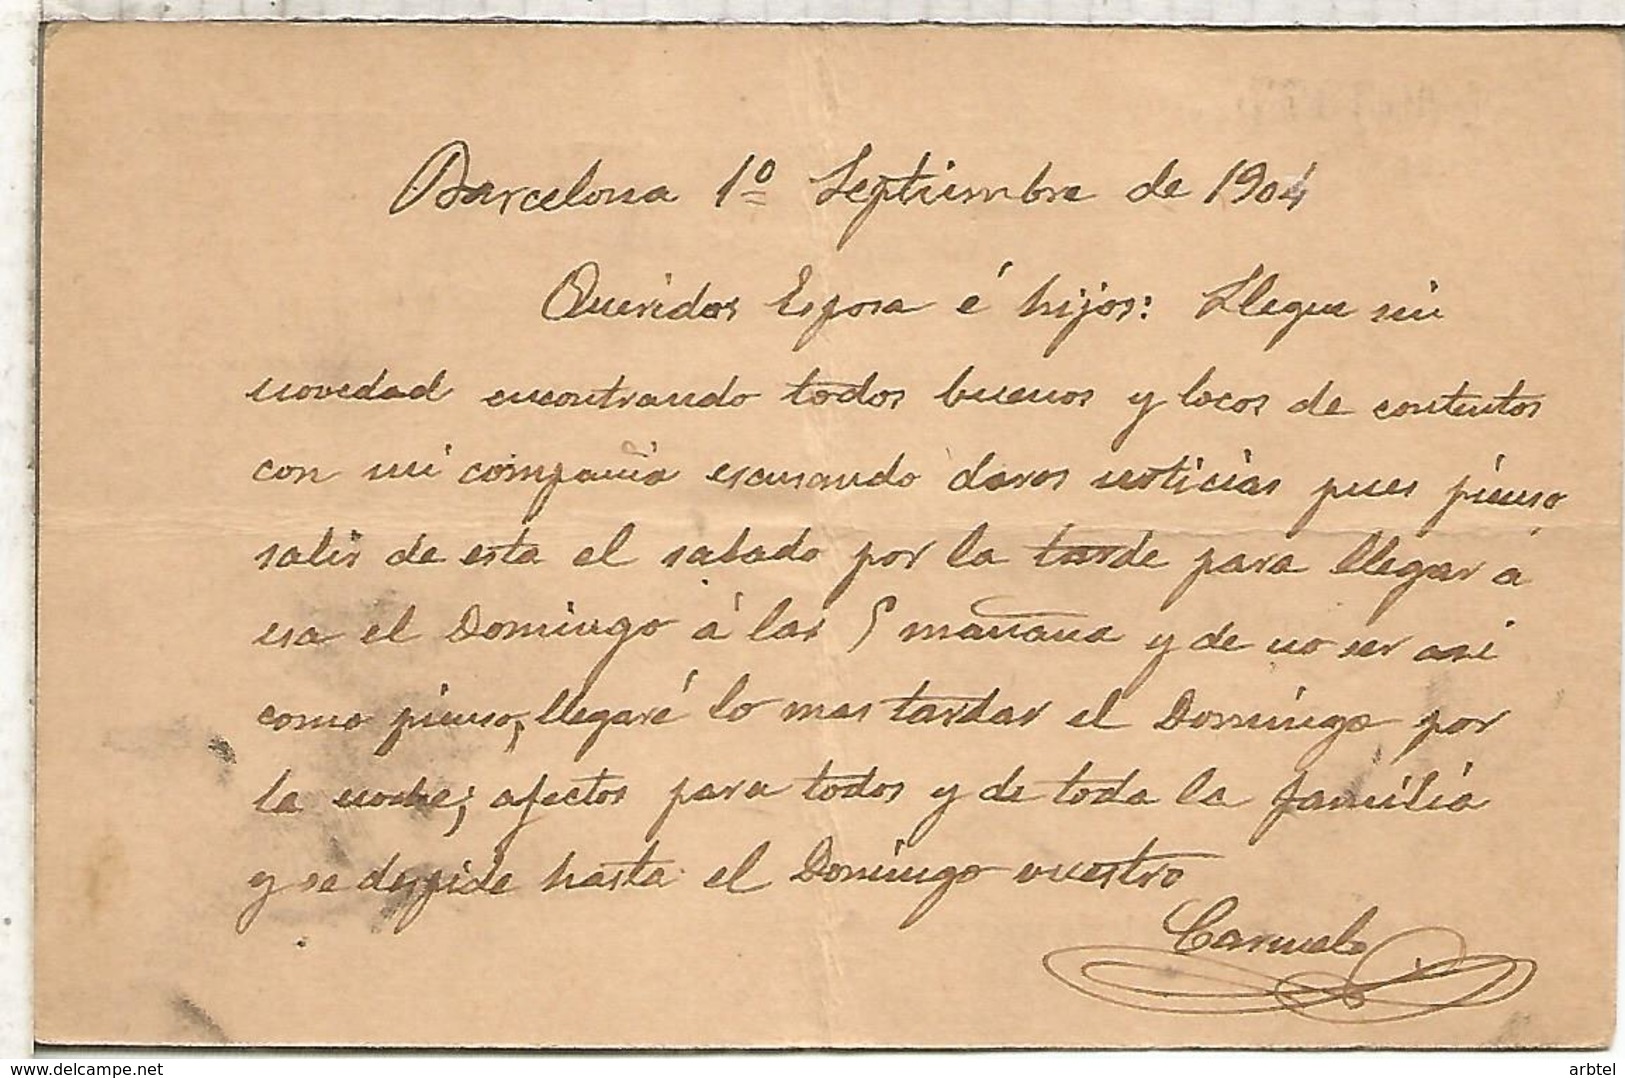 Barcelona 1º Septiembre de 1904
Queridos Esposa é hijos: Llegue sin
novedad encontrando todos buenos y locos de contentos
con mi compañia escusando daros noticias pues pienso
salir de esta el sabado por la tarde para llegar á
esa el Domingo á las 5 mañana y de no ser asi
como pienso, llegaré lo mas tardar el Domingo por
la noche; afectos para todos y de toda la familia
y se despide hasta el Domingo vuestro
Carmelo
arbtel